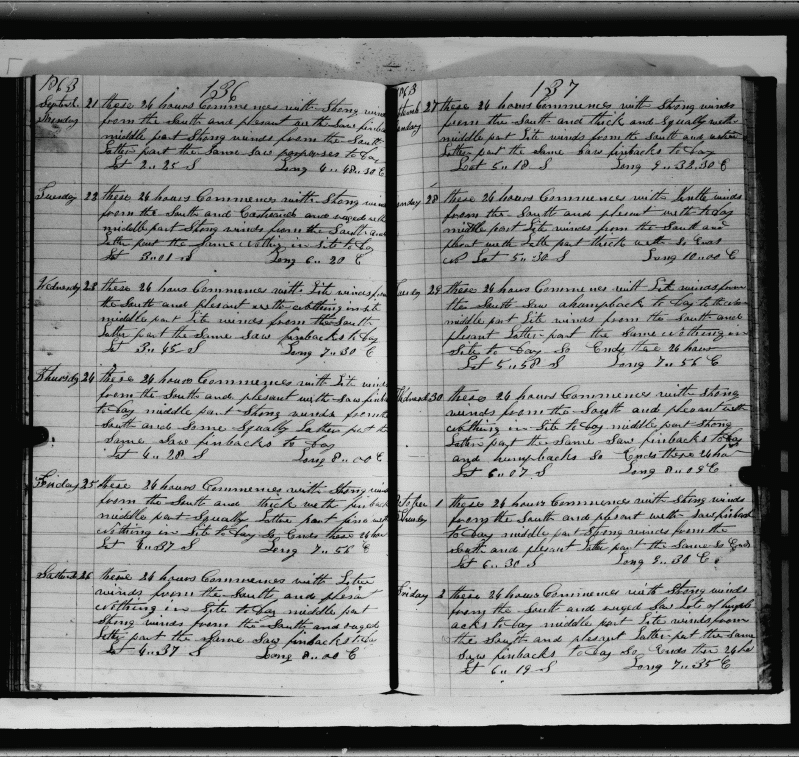 1863
136
Septemb. 21 these 24 hours Commences with Strong winds
Munday from the South and plesant weth Saw finback
middle part Strong winds from the South
Latter part the Same Saw porposes to Day
Lat 2..25 S Long 4..48..30 E
Tuesday 22 these 24 hours Commences with Strong winds
from the South and Eastward and ruged weth
middle part Strong winds from the South and
Latter part the Same Nothing in site to Day
Lat 3..01 S Long 6..20 E
Wedensdy 23 these 24 hours Commences with Lite winds from
the South and plesant weth nothing in site
middle part Lite winds from the South
Latter part the Same Saw finbacks to Day
Lat 3..45 S Long 7..30 E
Thursdy 24 these 24 hours Commences with Lite winds
from the South and plesant weth Saw finback
to Day middle part Strong winds from the
South and Some Squally Latter part the
Same Saw finbacks to Day
Lat 4..28 S Long 8..00 E
Friday 25 these 24 hours Commences with Strong winds
from the South and thick weth finback
middle part Squally Latter part fine weth
Nothing in Site to Day So Ends these 24 hour
Lat 4..37 S Long 7..56 E
Saturdy 26 these 24 hours Commences with Lite
winds from the South and plesant
Nothing in Site to Day middle part
Strong winds from the South and ruged
Latter part the Same Saw finbacks to Day
Lat 4..37 S Long 8..00 E
1863
137
27 these 24 hours Commences with Strong winds
from the South and thick and Squally weth
middle part Lite winds from the South and
Latter part the Same Saw finbacks to Day
Lat 5..18 S Long 9..32.30 E
28 these 24 hours Commences with winds
from the South and plesant weth to Day
middle part Lite winds from the South and
plesant weth Latter part thick weth So Ends
Lat 5..30 S Long 10..00 E
29 these 24 hours Commences with Lite winds from
the South Saw a humpback to Day
middle part Lite winds from the South and
plesant Latter part the Same Nothing in
Site to Day So Ends these 24 hours
Lat 5..58 S Long 7..56 E
30 these 24 hours Commences with Strong
winds from the South and plesant weth
Nothing in Site to Day middle part Strong
Latter part the Same Saw finbacks to Day
and humpbacks So Ends these 24 hou
Lat 6..07 S Long 8..09 E
October 1 these 24 hours Commences with Strong winds
Thursdy from the South and plesant weth Saw finback
to Day middle part Strong winds from the
South and plesant Latter part the Same So Ends
Lat 6..30 S Long 9..38 E
Friday 2 these 24 hours Commences with Strong winds
from the South and ruged Saw Lots of humpb
acks to Day middle part Lite winds from
the South and plesent Latter part the Same
Saw finbacks to Day So Ends these 24 ho
Lat 6..19 S Long 7..35 E